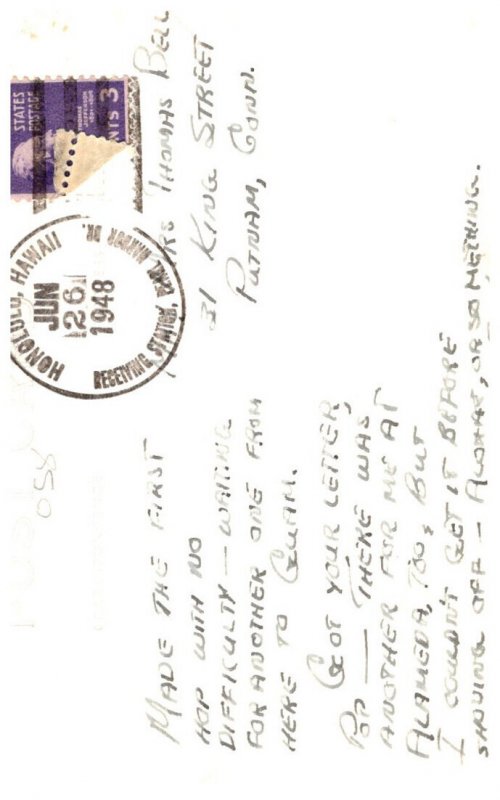 MADE THE FIRST
HOP WITH NO
DIFFICULTY — WAITING
FOR ANOTHER ONE FROM
HERE TO GUAM.
GOT YOUR LETTER,
POP — THERE WAS
ANOTHER FOR ME AT
ALAMEDA, TOO, BUT
I COULDN'T GET IT BEFORE
SHOVING OFF — ALOHA, OR SOMETHING.
HONOLULU, HAWAII
JUN
26
1948
RECEIVING STATION, PEARL HARBOR BR.
STATES
POSTAGE
THOMAS
JEFFERSON
NTS 3
MRS THOMAS BELL
31 KING STREET
PUTNAM, CONN.